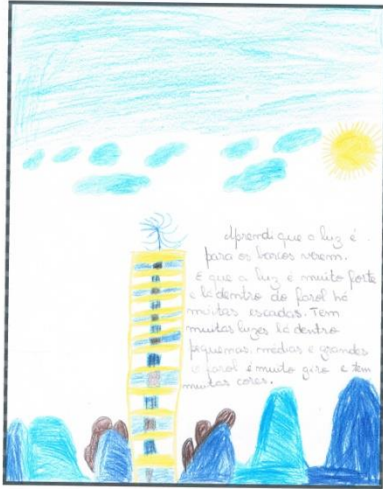 Aprendi que a luz é
para os barcos verem.
E que a luz é muito forte
e lá dentro do farol há
muitas escadas. Tem
muitas luzes lá dentro
pequenas, médias e grandes
o farol é muito giro e tem
muitas cores.